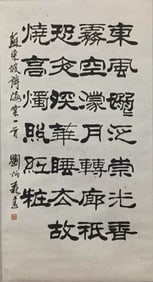 東風嫋泛崇光香
霧空濛月轉廊祇
恐夜深華睡去故
燒高燭照紅粧
蘇東坡詩海棠一首 劉炳森書